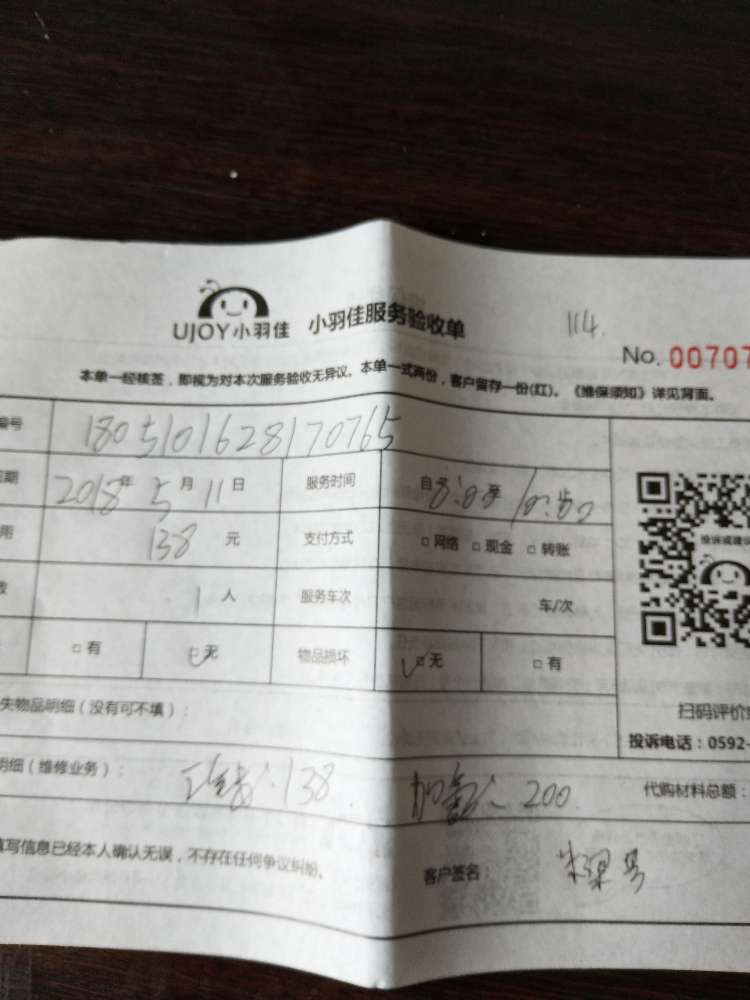 UJOY小羽佳 小羽佳服务验收单
114.
No. 00707
本单一经核签，即视为对本次服务验收无异议。本单一式两份，客户留存一份(红)。《维保须知》详见背面。
编号 180510162817 0765
日期 2018年 5月 11日 服务时间 自 8:00 至
用 138 元 支付方式 □网络 □现金 □转账
数 1 人 服务车次 车/次
□有 □无 物品损坏 □无 □有
投诉或建议
扫码评价
失物品明细（没有可不填）：
投诉电话：0592-
明细（维修业务）： 138 200 代购材料总额：
填写信息已经本人确认无误，不存在任何争议纠纷。
客户签名：